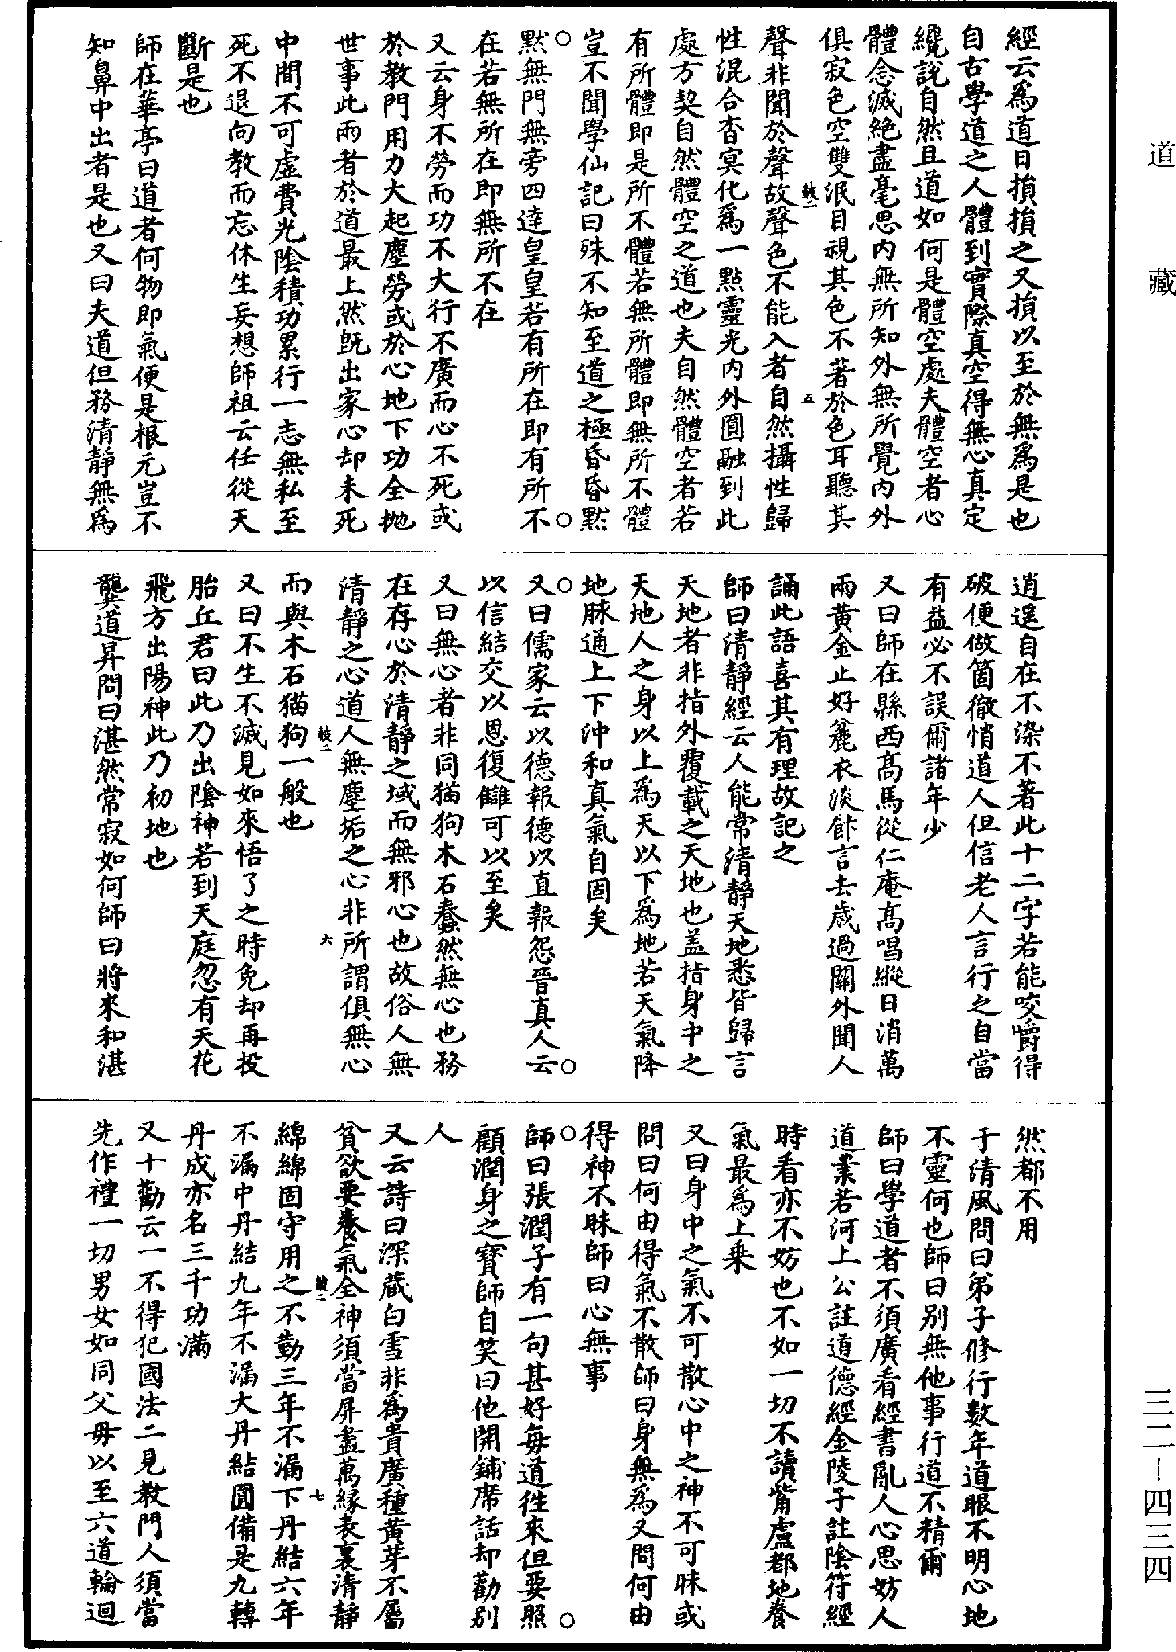 道藏
經云爲道日損損之又損以至於無爲是也
自古學道之人體到實際真空得無心真定
纔說自然且道如何是體空處夫體空者心
體念滅絕盡毫思内無所知外無所覺内外
俱寂色空雙泯目視其色不著於色耳聽其
聲非聞於聲故聲色不能入者自然攝性歸
性混合杳冥化爲一點靈光内外圓融到此
處方契自然體空之道也夫自然體空者若
有所體即是所不體若無所體即無所不體
豈不聞學仙記曰殊不知至道之極昏昏黙
黙無門無旁四逹皇皇若有所在即有所不
在若無所在即無所不在
又云身不勞而功不大行不廣而心不死或
於教門用力大起塵勞或於心地下功全抛
世事此兩者於道最上然既出家心却未死
中間不可虛費光陰積功累行一志無私至
死不退向教而忘休生妄想師祖云任從天
斷是也
師在華亭曰道者何物即氣便是根元豈不
知鼻中出者是也又曰夫道但務清靜無爲
逍遥自在不染不著此十二字若能咬嚼得
破便做箇徹悄道人但信老人言行之自當
有益必不誤爾諸年少
又曰師在縣西高馬從仁庵高唱縱日消萬
兩黄金止好麄衣淡飰言去歲過關外聞人
誦此語喜其有理故記之
師曰清靜經云人能常清靜天地悉皆歸言
天地者非指外覆載之天地也盖指身中之
天地人之身以上爲天以下爲地若天氣降
地脉通上下沖和真氣自固矣
又曰儒家云以德報德以直報怨晉真人云
以信結交以恩復讎可以至矣
又曰無心者非同猫狗木石蠢然無心也務
在存心於清靜之域而無邪心也故俗人無
清靜之心道人無塵垢之心非所謂俱無心
而與木石猫狗一般也
又曰不生不滅見如來悟了之時免却再投
胎丘君曰此乃出陰神若到天庭忽有天花
飛方出陽神此乃初地也
龔道昇問曰湛然常寂如何師曰將來和湛
然都不用
于清風問曰弟子修行数年道眼不明心地
不靈何也師曰別無他事行道不精爾
師曰學道者不須廣看經書亂人心思妨人
道業若河上公註道德經金陵子註陰符經
時看亦不妨也不如一切不讀觜盧都地養
氣最爲上乘
又曰身中之氣不可散心中之神不可昧或
問曰何由得氣不散師曰身無爲又問何由
得神不昧師曰心無事
師曰張潤子有一句甚好每道徃來但要照
顧潤身之寶師自笑曰他開鋪席話却勸別
人
又云詩曰深藏白雪非爲貴廣種黄芽不屬
貧欲要養氣全神須當屏盡萬緣表裏清靜
綿綿固守用之不勤三年不漏下丹結六年
不漏中丹結九年不漏大丹結圓備是九轉
丹成亦名三千功滿
又十勸云一不得犯國法二見教門人須當
先作禮一切男女如同父母以至六道輪迴
三二－四三四